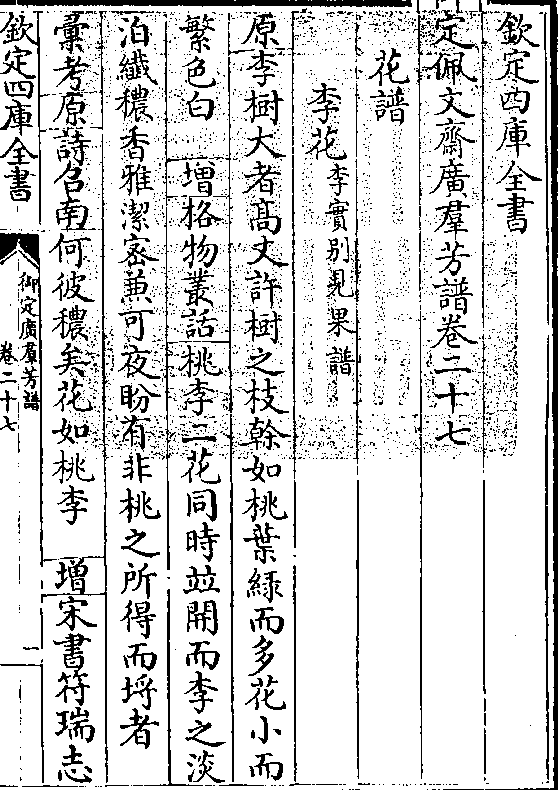 欽定四庫全書
定佩文齋廣羣芳譜卷二十七
花譜
李花李實別見果譜
原李樹大者高丈許樹之枝幹如桃葉綠而多花小而
繁色白 增格物叢話桃李二花同時並開而李之淡
泊纖穠香雅潔密兼可夜盼有非桃之所得而埒者
彙考原詩召南何彼穠矣花如桃李 增宋書符瑞志
欽定四庫全書
御定廣羣芳譜
卷二十七
一